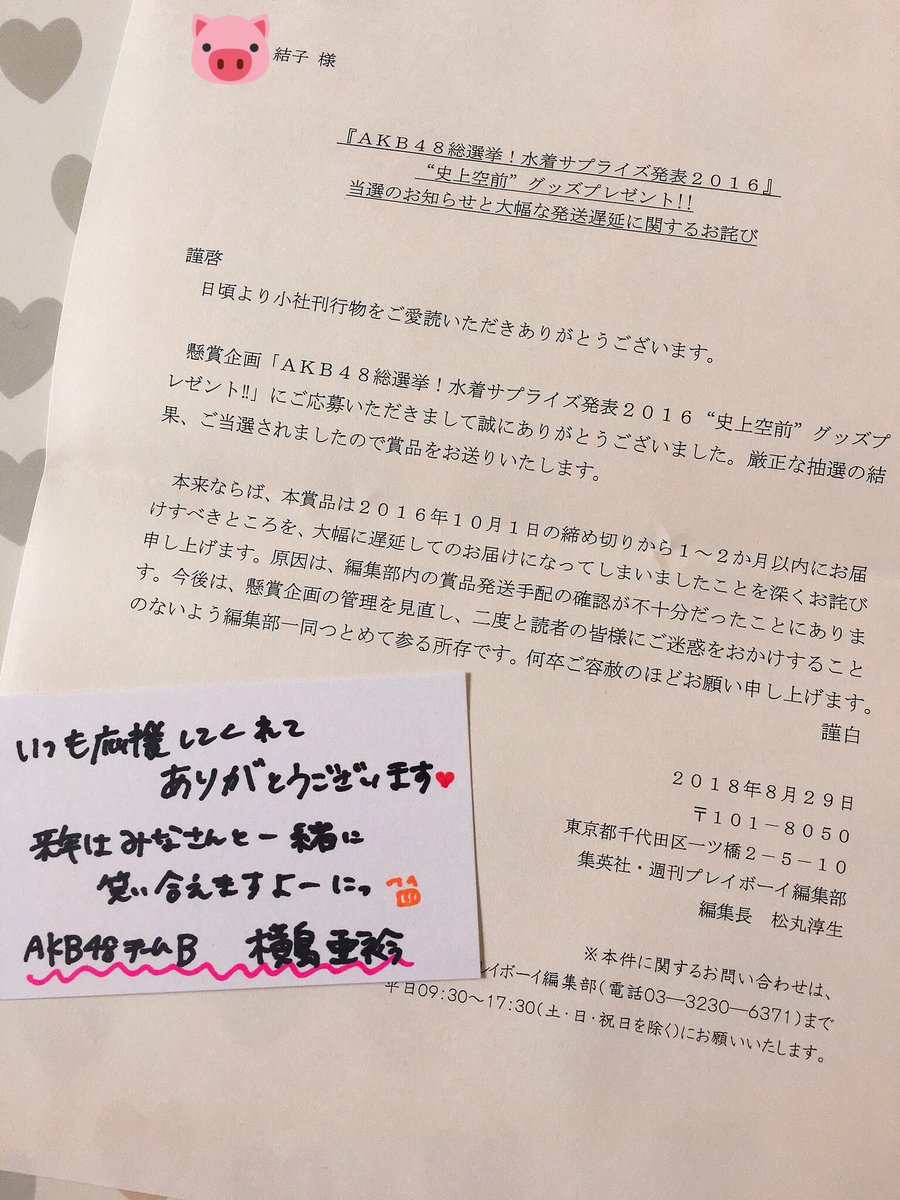 結子 様
『ＡＫＢ４８総選挙！水着サプライズ発表２０１６』
“史上空前”グッズプレゼント!!
当選のお知らせと大幅な発送遅延に関するお詫び
謹啓
日頃より小社刊行物をご愛読いただきありがとうございます。
懸賞企画「ＡＫＢ４８総選挙！水着サプライズ発表２０１６“史上空前”グッズプ
レゼント!!」にご応募いただきまして誠にありがとうございました。厳正な抽選の結
果、ご当選されましたので賞品をお送りいたします。
本来ならば、本賞品は２０１６年１０月１日の締め切りから１～２か月以内にお届
けすべきところを、大幅に遅延してのお届けになってしまいましたことを深くお詫び
申し上げます。原因は、編集部内の賞品発送手配の確認が不十分だったことにありま
す。今後は、懸賞企画の管理を見直し、二度と読者の皆様にご迷惑をおかけすること
のないよう編集部一同つとめて参る所存です。何卒ご容赦のほどお願い申し上げます。
謹白
２０１８年８月２９日
〒１０１－８０５０
東京都千代田区一ツ橋２－５－１０
集英社・週刊プレイボーイ編集部
編集長　松丸淳生
※本件に関するお問い合わせは、
レイボーイ編集部(電話03―3230―6371)まで
平日09:30～17:30(土・日・祝日を除く)にお願いいたします。
いつも応援してくれて
ありがとうございます♥
来年はみなさんと一緒に
笑い合えますよーにっ
AKB48チームB　横島亜衿